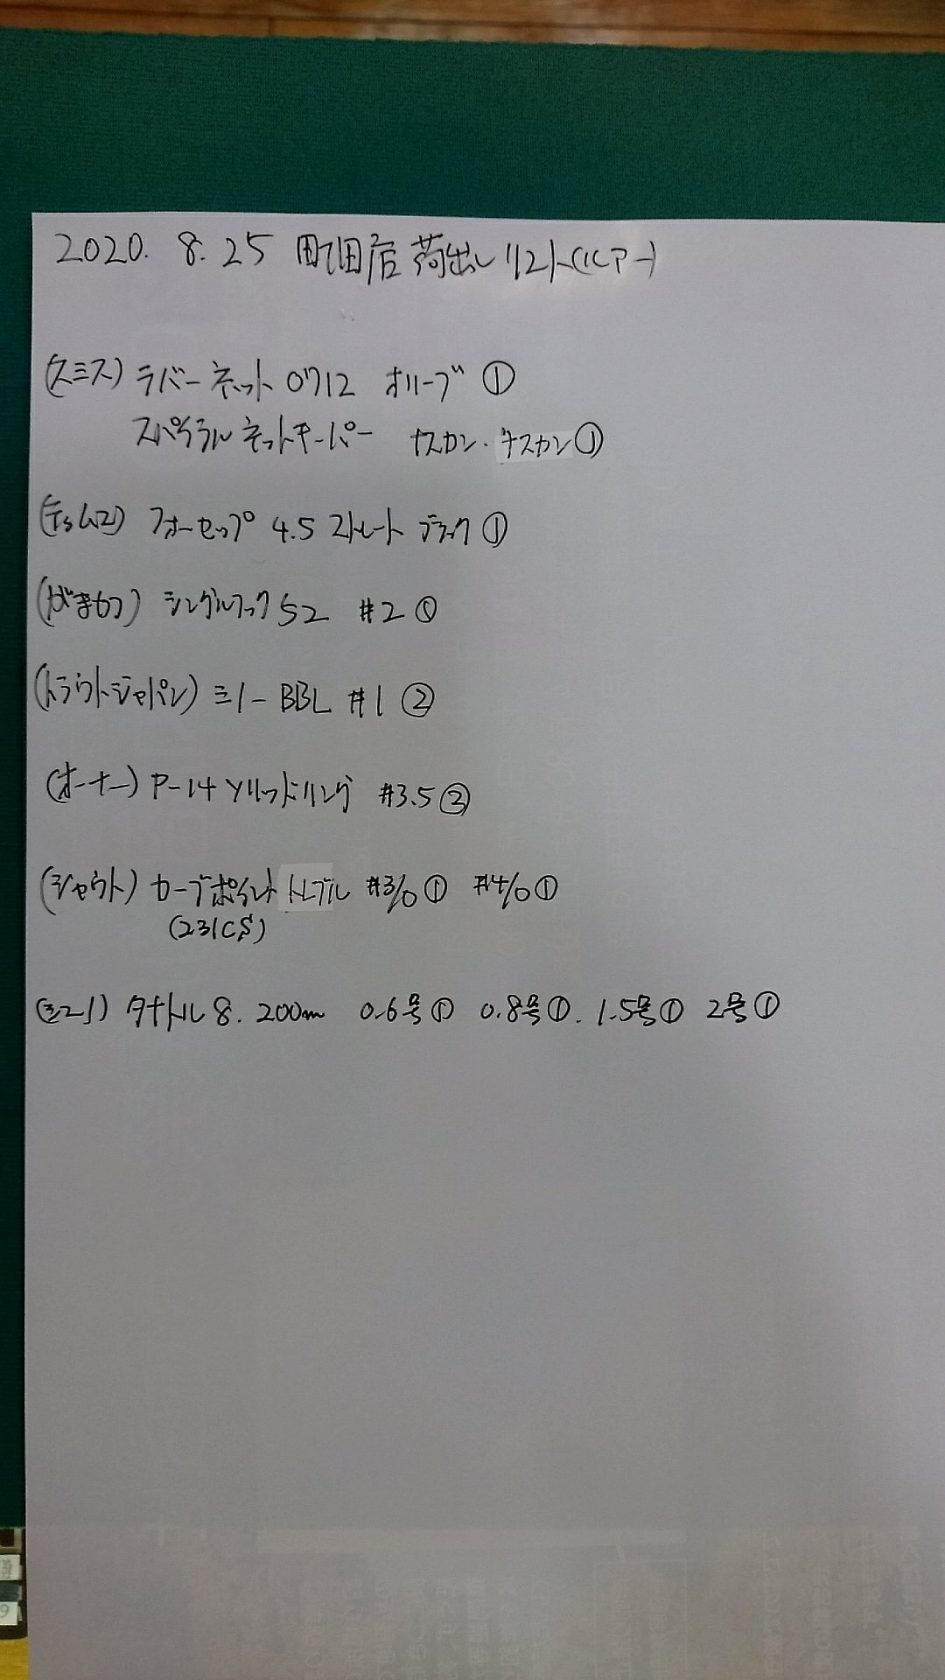 2020. 8. 25 町田店 荷出しリスト(ルアー)
(スミス) ラバーネット 0712 オリーブ ①
スパイラルネットキーパー ナスカン・ナスカン①
(ティムコ) フォーセップ 4.5 ストレート ブラック ①
(がまかつ) シングルフック 52 #2 ①
(トラウトジャパン) ミノーBBL #1 ②
(オーナー) P-14 ソリッドリング #3.5 ②
(シャウト) カーブポイント トレブル #3/0 ① #4/0 ①
(231CS)
タナトル 8. 200m 0.6号① 0.8号①. 1.5号① 2号①